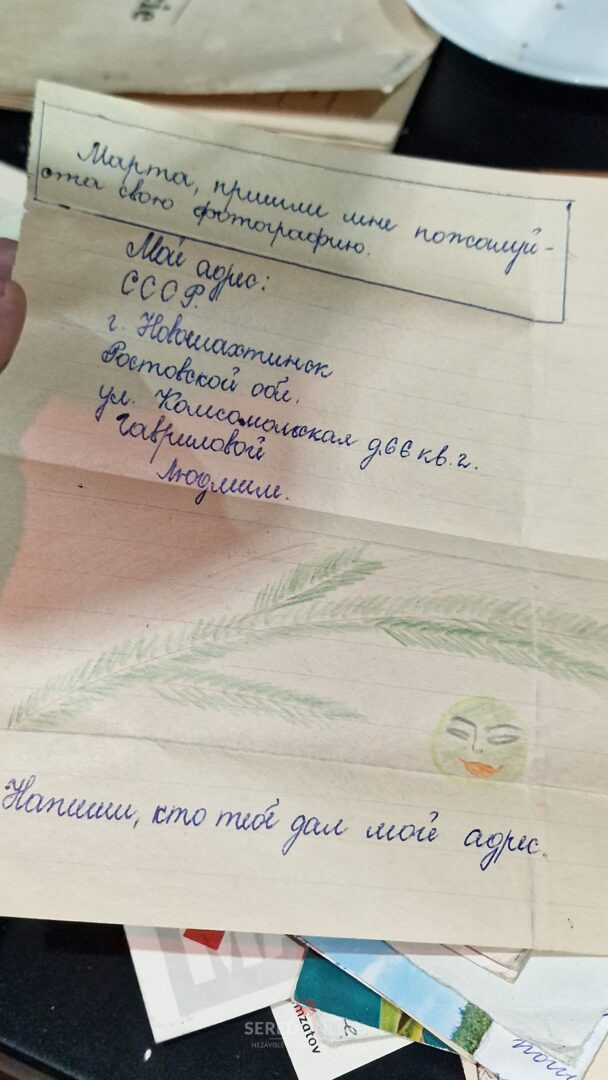 ie
Марта, пришли мне пожалуй-
ста свою фотографию.
Мой адрес:
СССР.
г. Новошахтинск
Ростовской обл.
ул. Комсомольская д.66 кв.2.
Гавриловой
Людмиле.
Напиши, кто тебе дал мой адрес.
SERED
NEZÁVISLÉ
mzatov